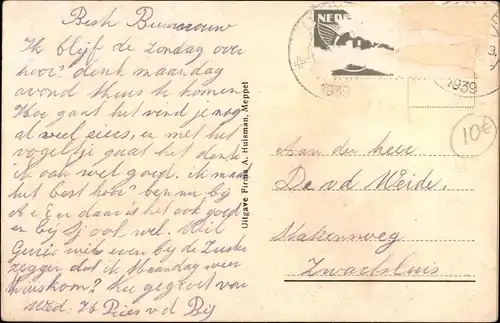 Besh Buurvrouw
Ik blijf de zondag over
hoor? denk maandag
avond thuis te komen
Hoe gaat het vind je nog
al veel en met het
vogeltje gaat het denk
ik ook wel goed. ik maak
het best hoor ben nu bij
A en E en daar is het ook goed
en bij ook wel. Wil
wil even bij de
zeggen dat ik Maandag weer
thuiskom? gegroet van
Wed.
Uitgave Firma A. Huisman, Meppel
NEDE
1939
1939
10€
Aan den heer
De v d Weide.
Stationsweg
Zwartsluis